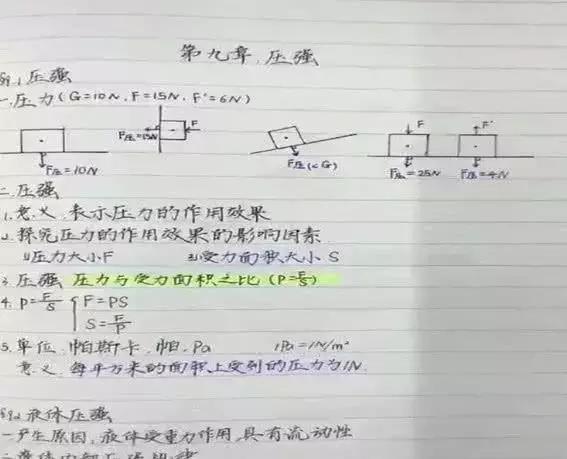 第九章.压强
§9.1压强
一.压力(G=10N.F=15N.F'=6N)
F压=10N
F压=15N F
F压(<G)
F F压=25N
F' F压=4N
二.压强
1.意义.表示压力的作用效果
2.探究压力的作用效果的影响因素
1)压力大小F 2)受力面积大小S
3.压强 压力与受力面积之比(P=F/S)
4.P=F/S { F=PS
S=F/P
5.单位.帕斯卡.帕.Pa 1Pa=1N/m²
意义.每平方米的面积上受到的压力为1N.
§9.2液体压强
一产生原因.液体受重力作用.具有流动性